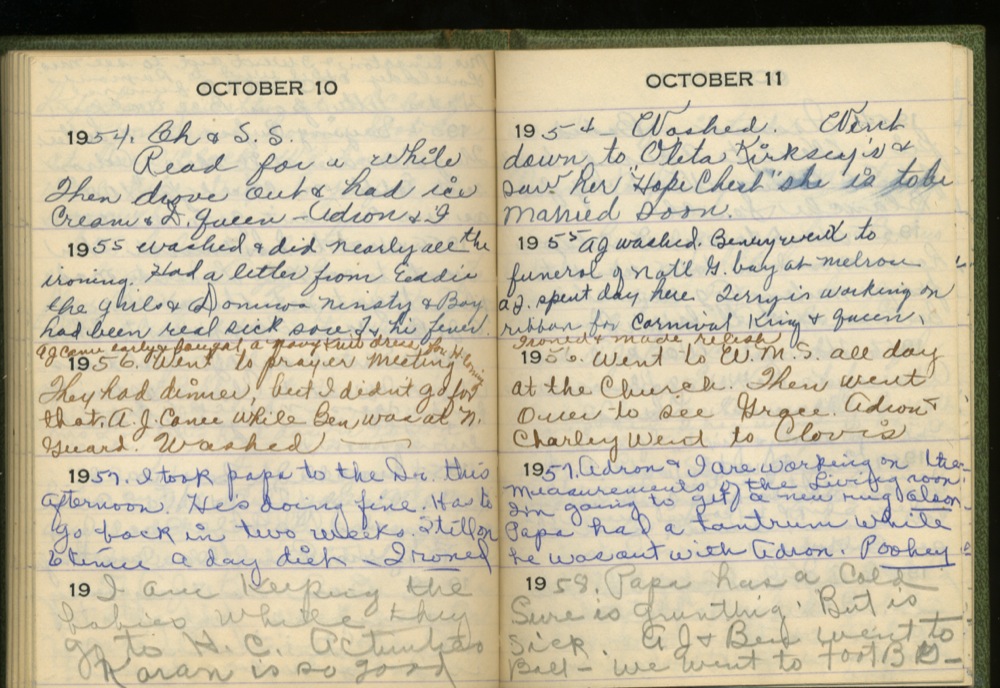 OCTOBER 10
1954. Ch & S.S.
Read for a while
Then drove out & had ice
Cream & D. Queen - Adron & I
1955 washed & did nearly all the
ironing. Had a letter from Eddie
the girls & & Boy
had been real sick sore T. & hi fever.
A J Came early & bought a navy dress for H. Coming
1956. Went to prayer meeting
They had dinner, but I didnt go for
that. A.J. Came while Ben was at N.
Guard. Washed
1957. I took papa to the Dr. this
afternoon. He's doing fine. Has to
go back in two weeks. Still on
a day diet - I roned
19 I am Keeping the
babies while they
go to H.C. Activities
Karan is so good
OCTOBER 11
1954 Washed. Went
down to Oleta Kirksey's &
saw her "Hope Chest" she is to be
Married soon.
1955 AJ washed. Benny went to
funeral of Nat'l G. boy at Melrose
A.J. spent day here. Terry is working on
ribbon for Carnival King & queen.
Ironed & made relish
1956. Went to W.M.S. all day
at the Church. Then went
Over to see Grace. Adron &
Charley Went to Clovis
1957. Adron & I are working on the
measurements of the living room.
I'm going to get a new rug
Papa had a tantrum while
he was out with Adron. Poohey
1958. Papa has a Cold
Sure is grunting. But is
Sick. A J & Ben went to
Ball - We went to Foot B